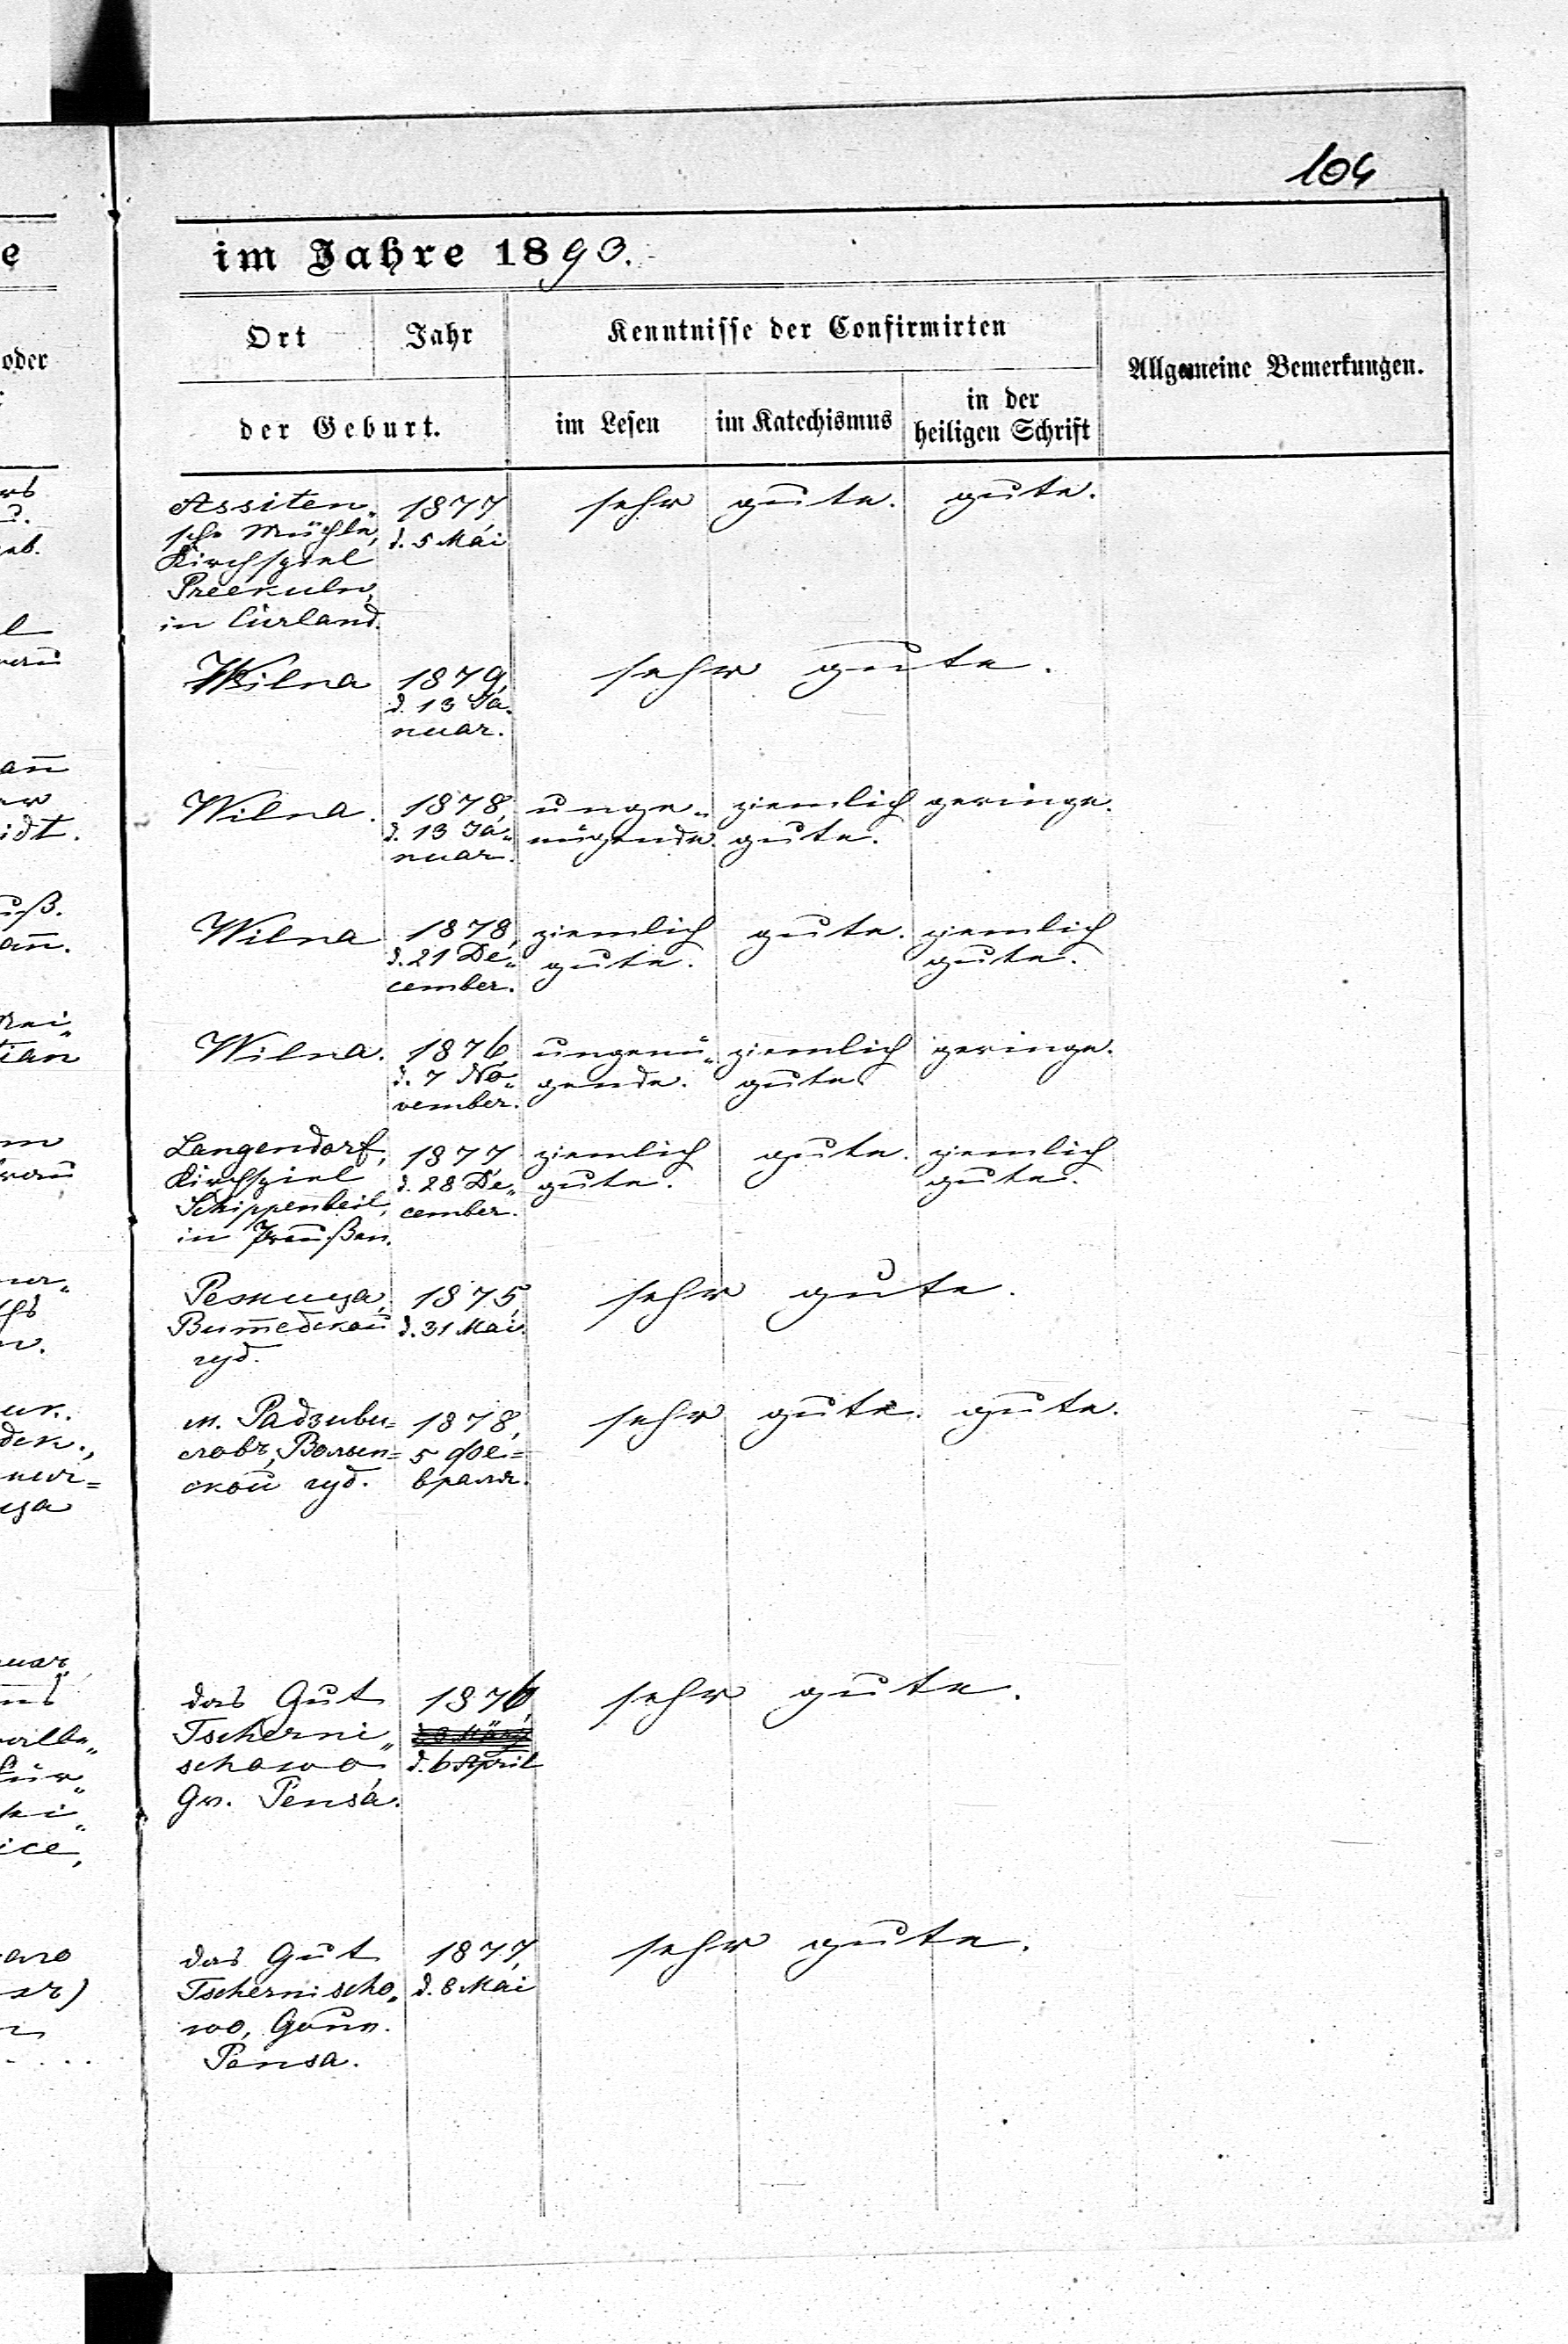 104
im Jahre 1893.
Ort Jahr Kenntnisse der Confirmirten
Allgemeine Bemerkungen.
der Geburt. im Lesen im Katechismus in der heiligen Schrift
Assiten- 1877, sehr gute. gute.
sche Mühle, d. 5 Mai
Kirchspiel
Preekuln,
in Curland.
Wilna 1879, sehr gute.
d. 13 Ja-
nuar.
Wilna. 1878, unge- ziemlich geringe.
d. 13 Ja- nügende. gute.
nuar.
Wilna 1878, ziemlich gute. ziemlich
d. 21 De- gute. gute.
cember.
Wilna. 1876, ungenü- ziemlich geringe.
d. 7 No- gende. gute
vember.
Langendorf, 1877 ziemlich gute. ziemlich
Kirchspiel d. 28 De- gute. gute.
Schippenbeil, cember.
in Preußen.
Режица, 1875, sehr gute.
Витебской d. 31 Mai.
губ.
м. Радзиви- 1878, sehr gute. gute.
ловъ, Волын- 5 Фе-
ской губ. враля.
das Gut 1876, sehr gute.
Tscherni-
schowo, d. 6 April
Gv. Pensa.
das Gut 1877, sehr gute.
Tschernischo- d. 8 Mai
wo, Gouv.
Pensa.